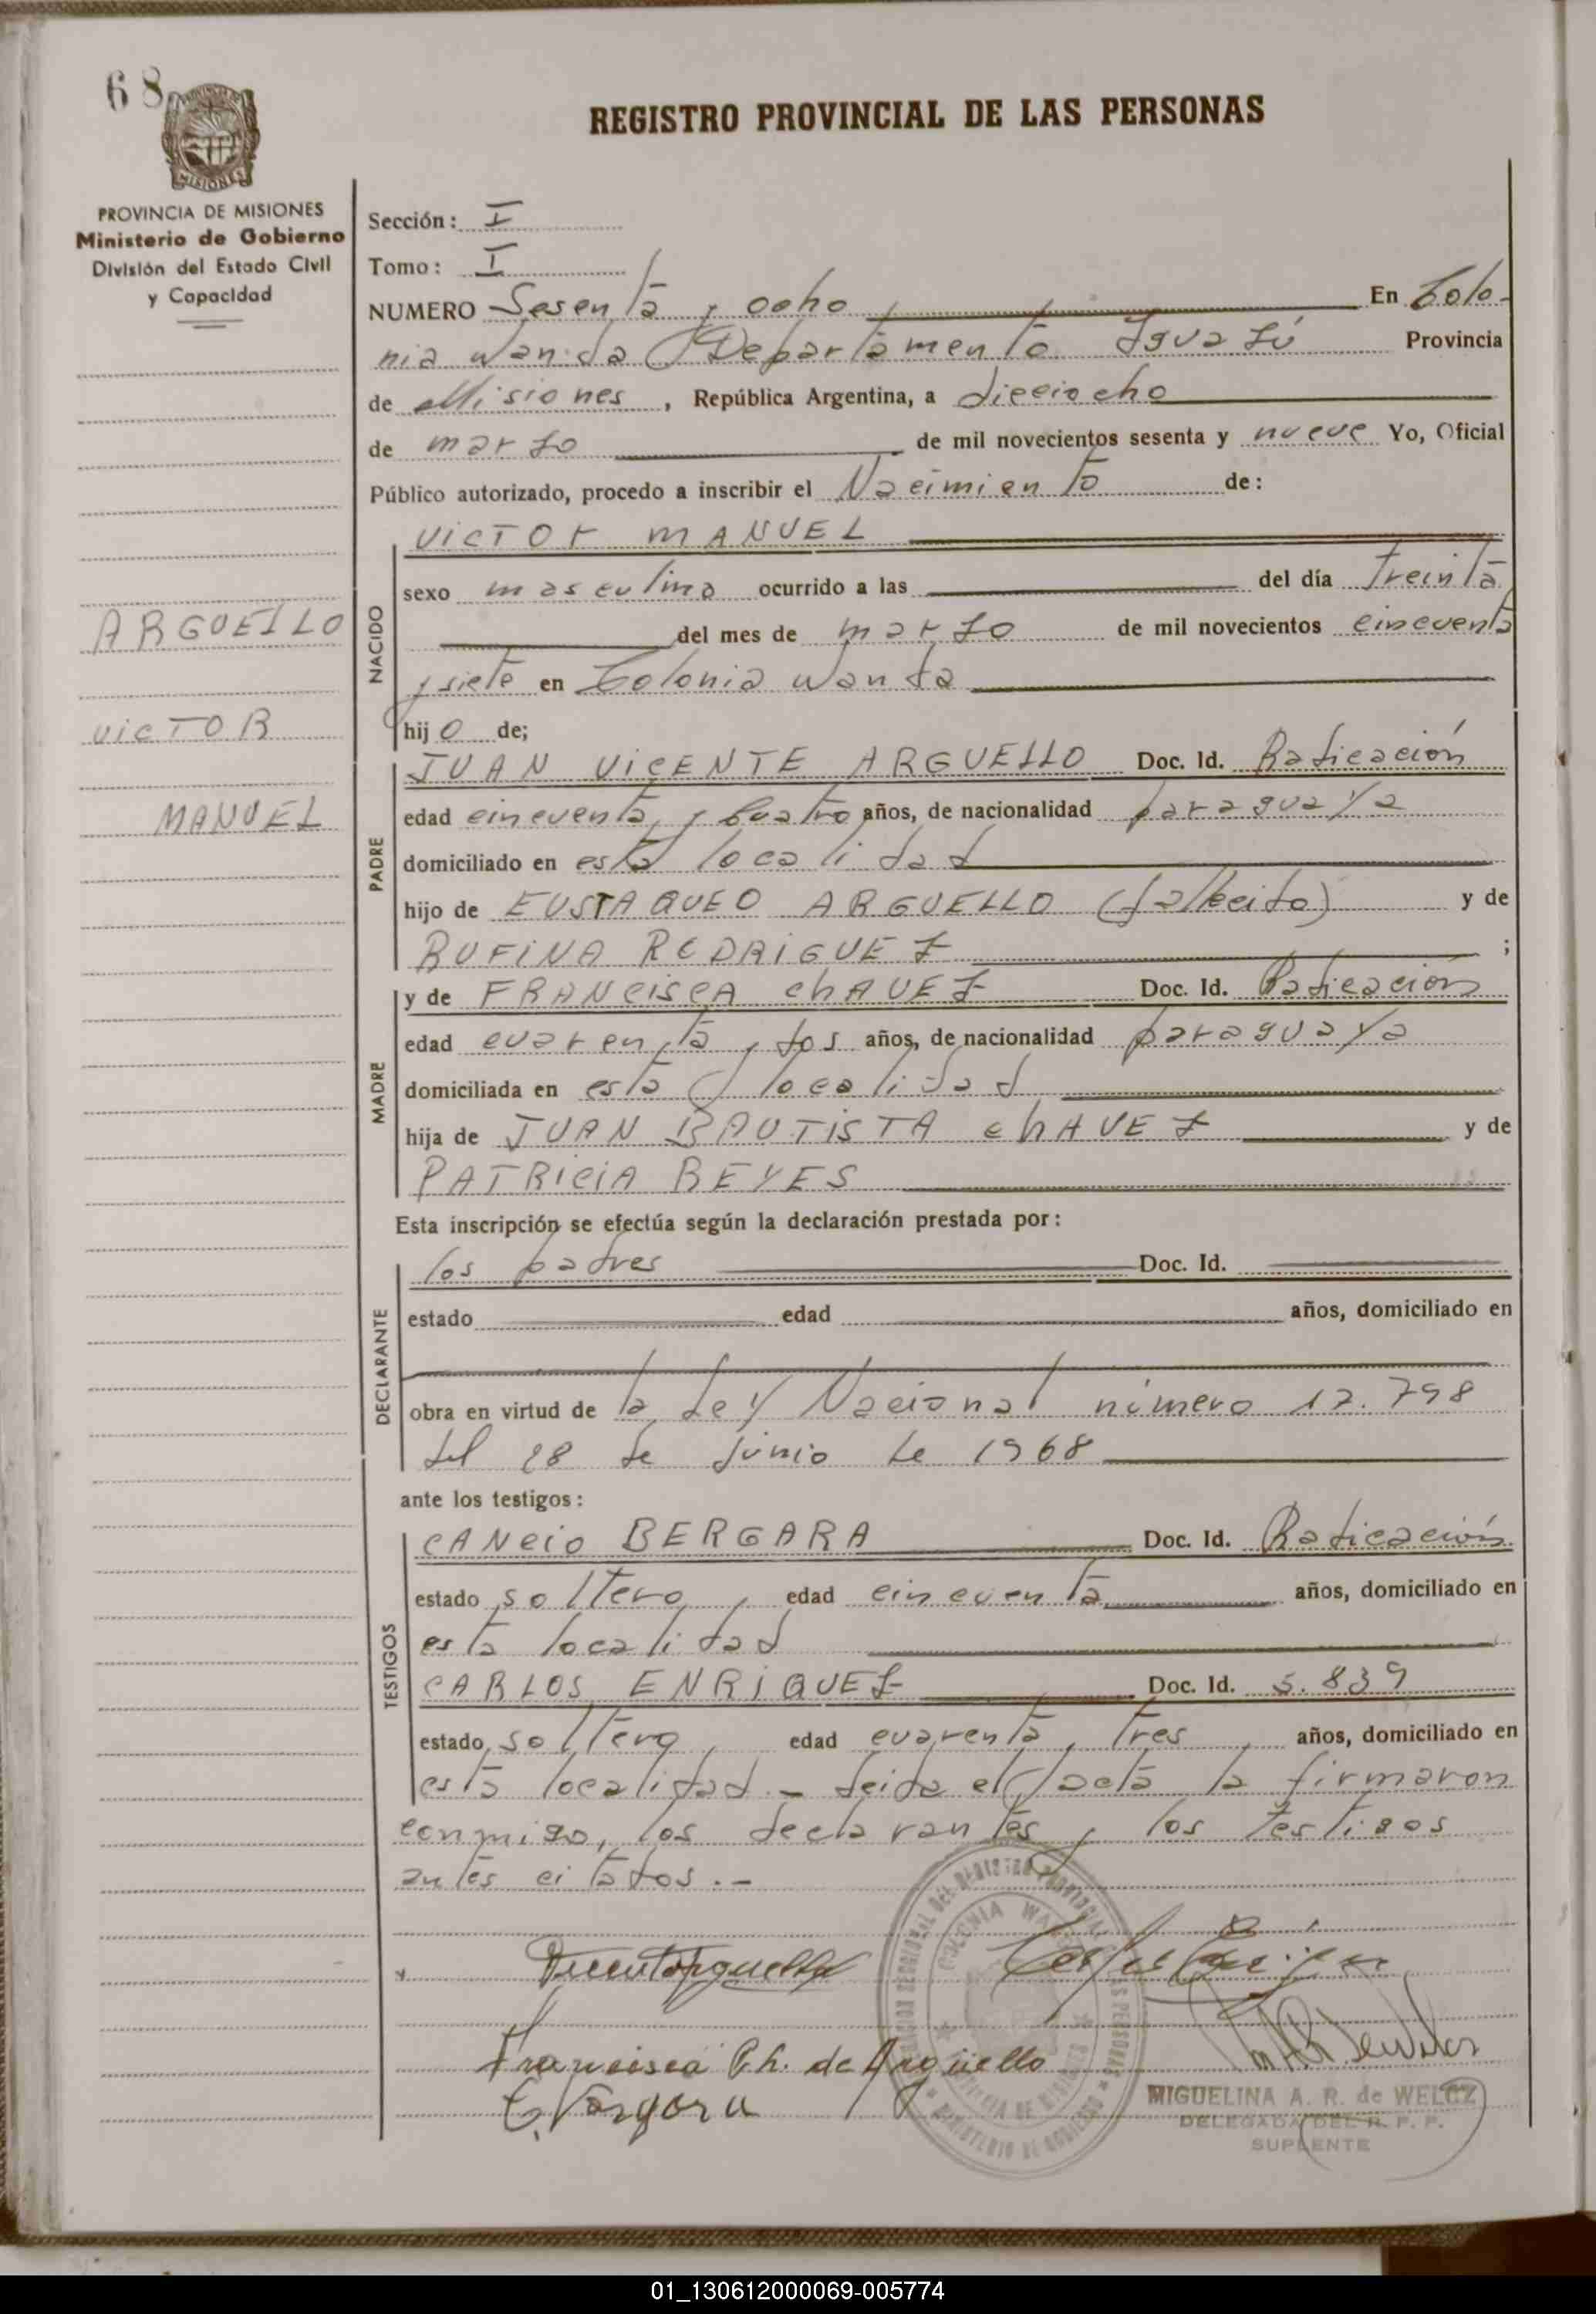 68
MISIONES
PROVINCIA DE MISIONES
Ministerio de Gobierno
División del Estado Civil
y Capacidad
REGISTRO PROVINCIAL DE LAS PERSONAS
Sección: I
Tomo: I
NUMERO Sesenta y ocho En Colo-
nia Wanda Departamento Iguazú Provincia
de Misiones, República Argentina, a dieciocho
de marzo de mil novecientos sesenta y nueve Yo, Oficial
Público autorizado, procedo a inscribir el Nacimiento de:
NACIDO
VICTOR MANUEL
sexo masculino ocurrido a las del día treinta
del mes de marzo de mil novecientos cincuenta
y siete en Colonia Wanda
hijo de;
ARGUELLO
VICTOR
MANUEL
PADRE
JUAN VICENTE ARGUELLO Doc. Id. Radicación
edad cincuenta y cuatro años, de nacionalidad paraguaya
domiciliado en esta localidad
hijo de EUSTAQUEO ARGUELLO (fallecido) y de
RUFINA RODRIGUEZ ;
MADRE
y de FRANCISCA CHAVEZ Doc. Id. Radicación
edad cuarenta y dos años, de nacionalidad paraguaya
domiciliada en esta localidad
hija de JUAN BAUTISTA CHAVEZ y de
PATRICIA REYES
Esta inscripción se efectúa según la declaración prestada por:
DECLARANTE
los padres Doc. Id.
estado edad años, domiciliado en
obra en virtud de la Ley Nacional número 17.798
del 28 de junio de 1968
ante los testigos:
TESTIGOS
CANCIO BERGARA Doc. Id. Radicación
estado soltero, edad cincuenta años, domiciliado en
esta localidad
CARLOS ENRIQUEZ Doc. Id. 5.839
estado soltero, edad cuarenta y tres años, domiciliado en
esta localidad.- Leida el acta la firmaron
conmigo, los declarantes y los testigos
antes citados.-
Vicente Arguello
Francisca Ch. de Argüello
C. Vargara
MIGUELINA A. R. de WELCZ
DELEGADA DEL R. P. P.
SUPLENTE
01_130612000069-005774